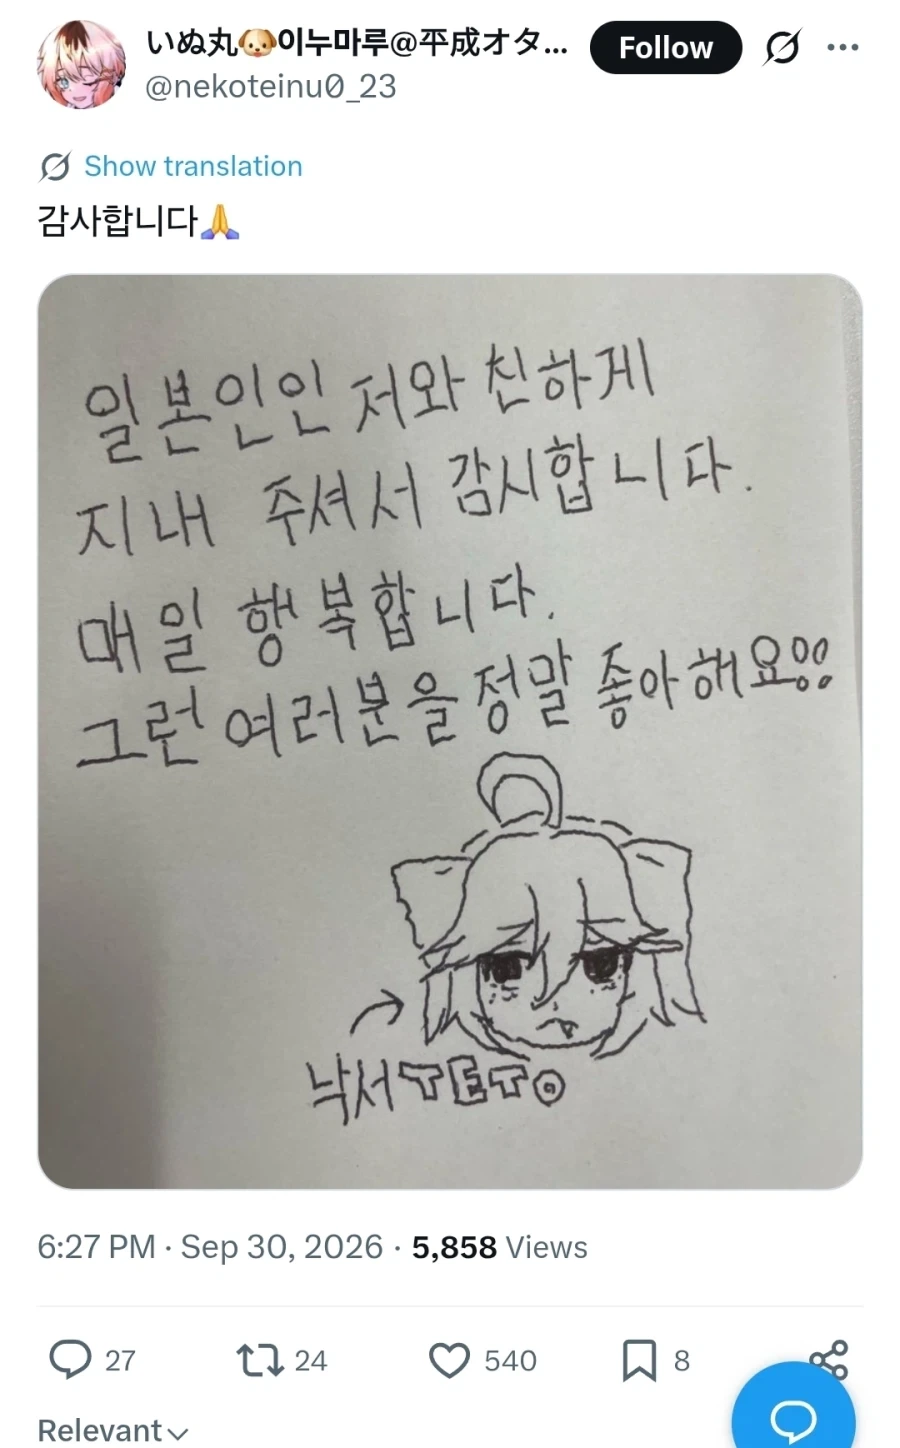 いぬ丸🐶이누마루@平成オタ...
Follow
@nekoteinu0_23
Show translation
감사합니다🙏
일본인인 저와 친하게
지내 주셔서 감시합니다.
매일 행복합니다.
그런 여러분을 정말 좋아해요!!
낙서 TETO
6:27 PM · Sep 30, 2026 · 5,858 Views
27
24
540
8
Relevant